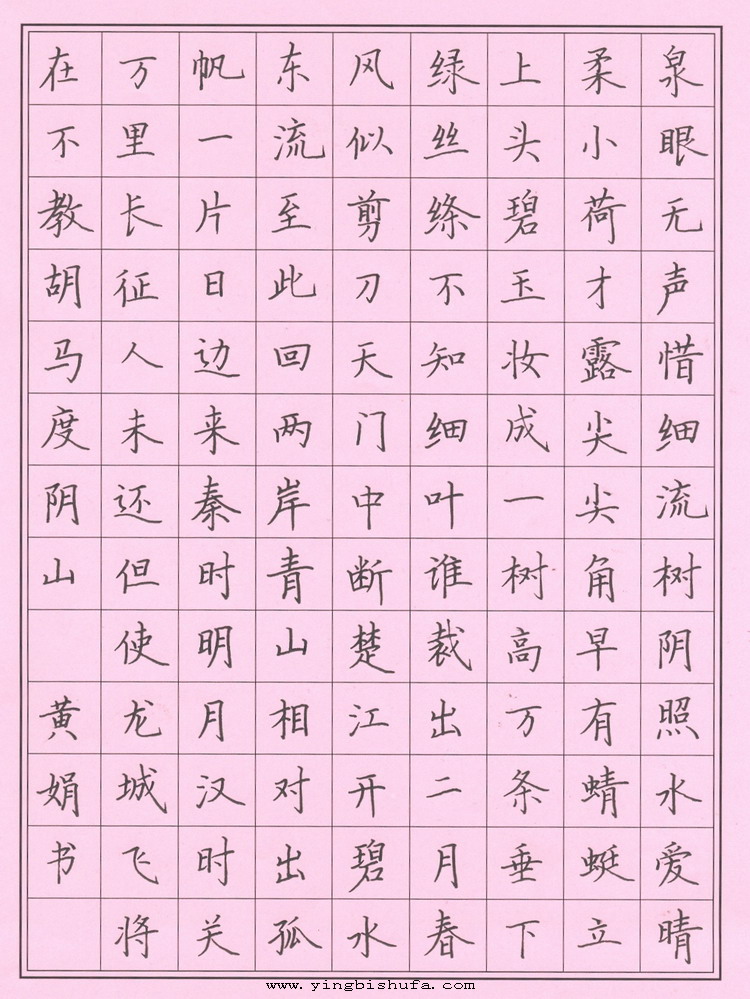 泉眼无声惜细流树阴照水爱晴
柔小荷才露尖尖角早有蜻蜓立
上头碧玉妆成一树高万条垂下
绿丝绦不知细叶谁裁出二月春
风似剪刀天门中断楚江开碧水
东流至此回两岸青山相对出孤
帆一片日边来秦时明月汉时关
万里长征人未还但使龙城飞将
在不教胡马度阴山 黄娟书
www.yingbishufa.com